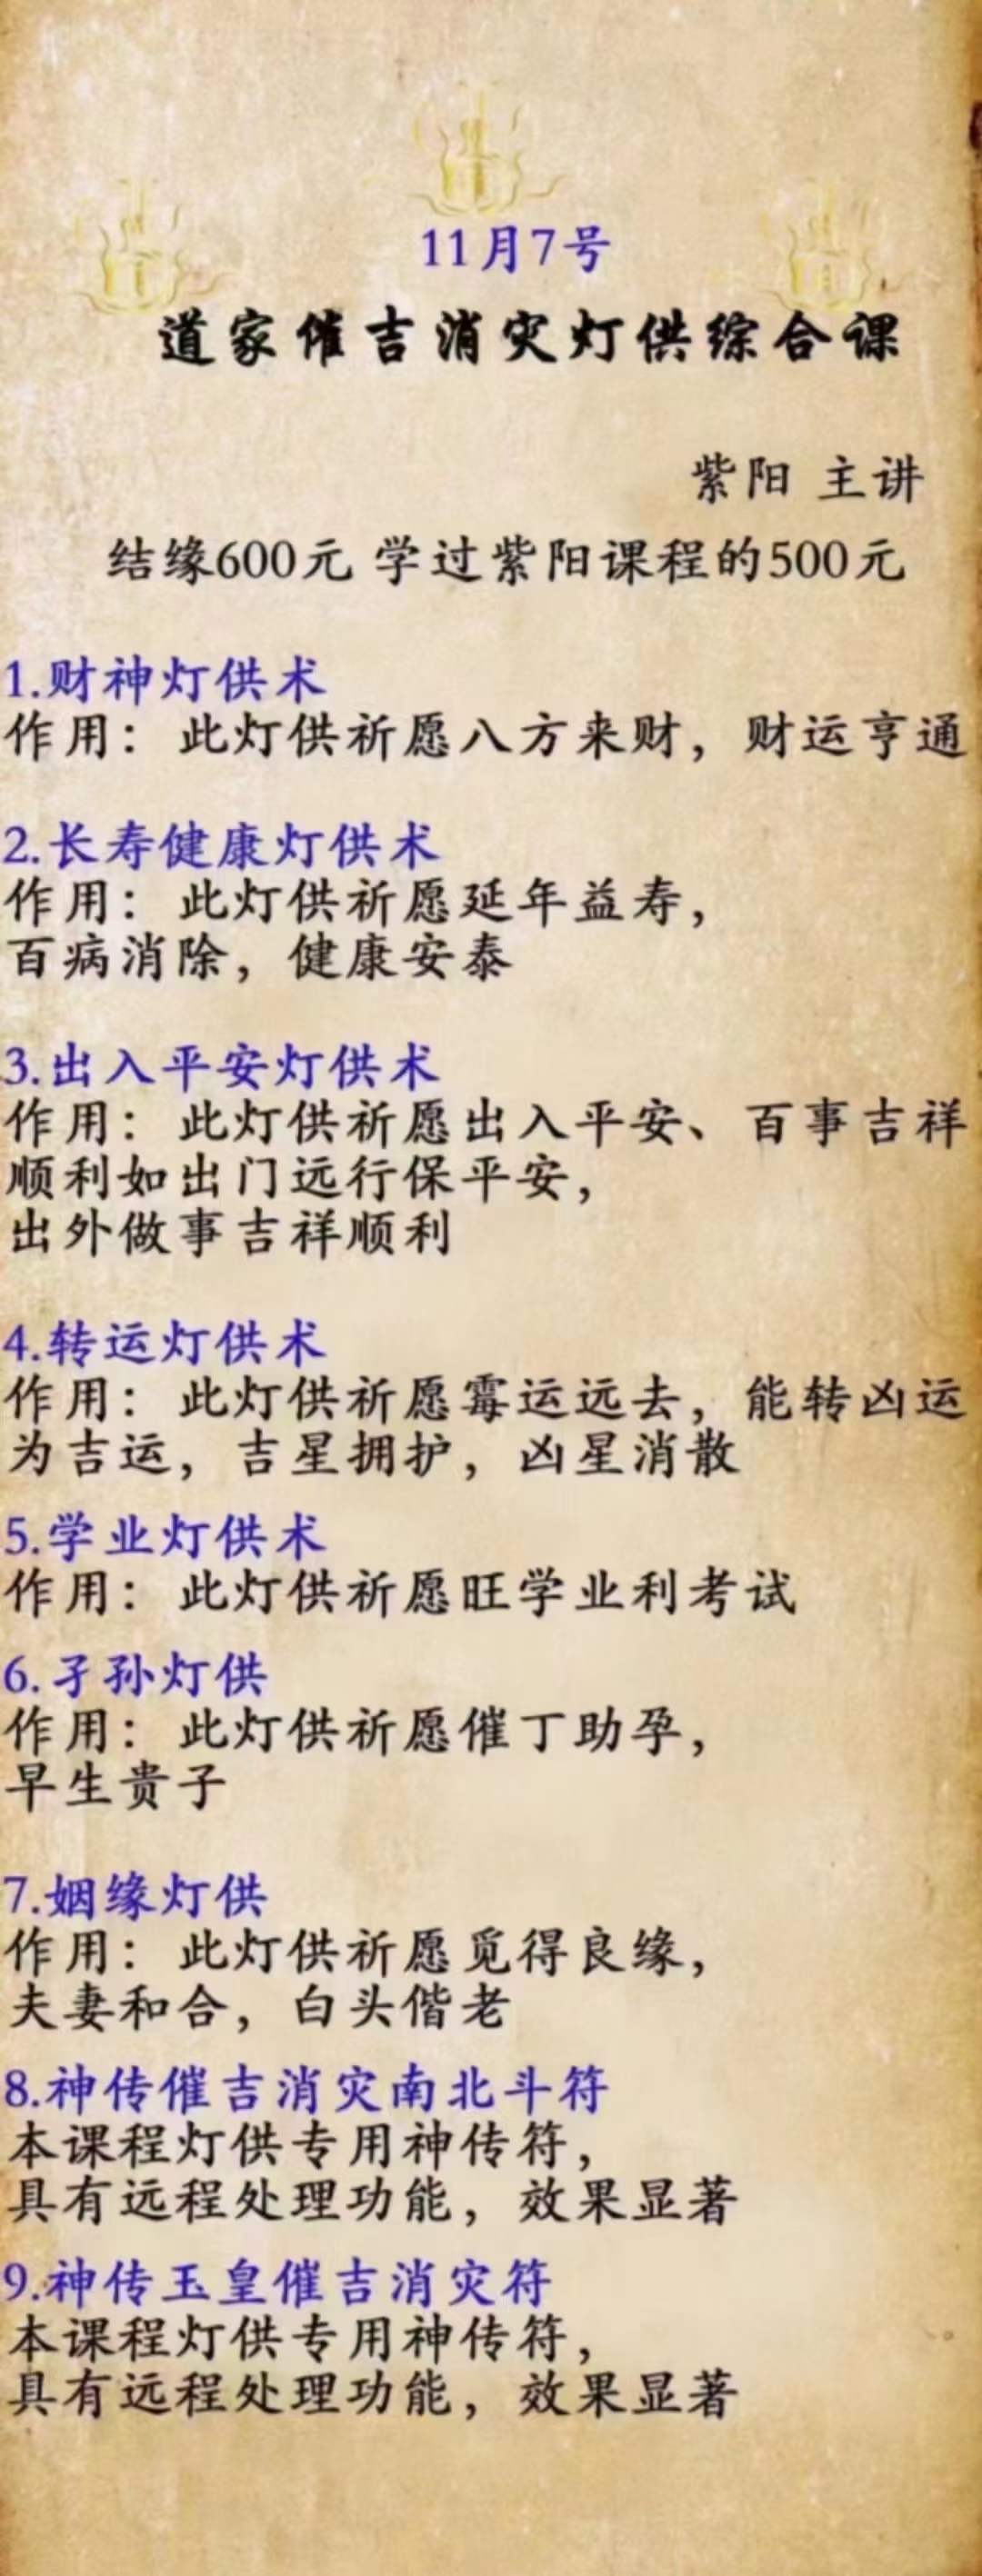 11月7号
道家催吉消灾灯供综合课
紫阳 主讲
结缘600元 学过紫阳课程的500元
1.财神灯供术
作用：此灯供祈愿八方来财，财运亨通
2.长寿健康灯供术
作用：此灯供祈愿延年益寿，
百病消除，健康安泰
3.出入平安灯供术
作用：此灯供祈愿出入平安、百事吉祥
顺利如出门远行保平安，
出外做事吉祥顺利
4.转运灯供术
作用：此灯供祈愿霉运远去，能转凶运
为吉运，吉星拥护，凶星消散
5.学业灯供术
作用：此灯供祈愿旺学业利考试
6.子孙灯供
作用：此灯供祈愿催丁助孕，
早生贵子
7.姻缘灯供
作用：此灯供祈愿觅得良缘，
夫妻和合，白头偕老
8.神传催吉消灾南北斗符
本课程灯供专用神传符，
具有远程处理功能，效果显著
9.神传玉皇催吉消灾符
本课程灯供专用神传符，
具有远程处理功能，效果显著